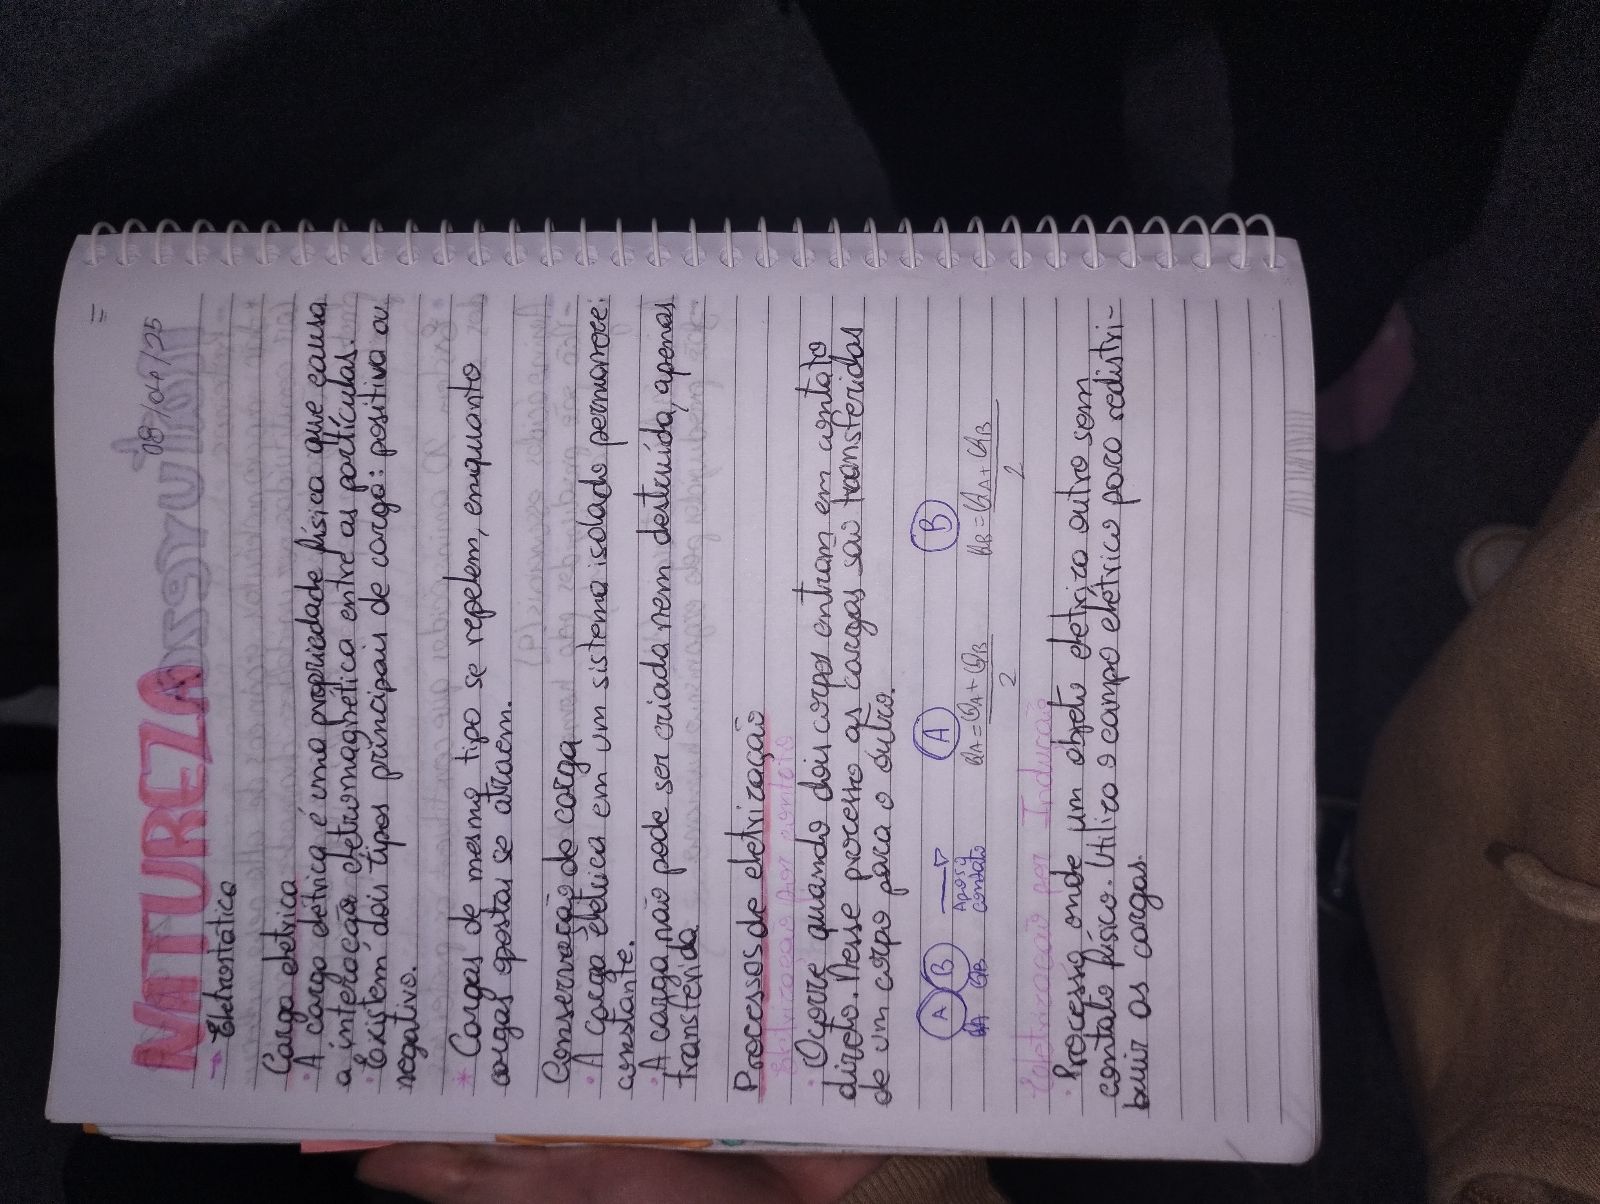 NATUREZA
08/04/25
→ Eletrostática
Carga eletrica
• A carga elétrica é uma propriedade física que causa
a interação eletromagnética entre as partículas.
• Existem dois tipos principais de carga: positiva ou
negativo.
* Cargas de mesmo tipo se repelem, enquanto
cargas opostas se atraem.
Conservação de carga
• A carga elétrica em um sistema isolado permanece
constante.
• A carga não pode ser criada nem destruída, apenas
transferida
Processos de eletrização
Eletrização por contato
• Ocorre quando dois corpos entram em contato
direto. Nesse processo as cargas são transferidas
de um corpo para o outro.
A B → A B
QA QB Após contato QA = QA + QB / 2 QB = QA + QB / 2
Eletrização por Indução
• Processo onde um objeto eletriza outro sem
contato físico. Utiliza o campo elétrico para redistri-
buir as cargas.